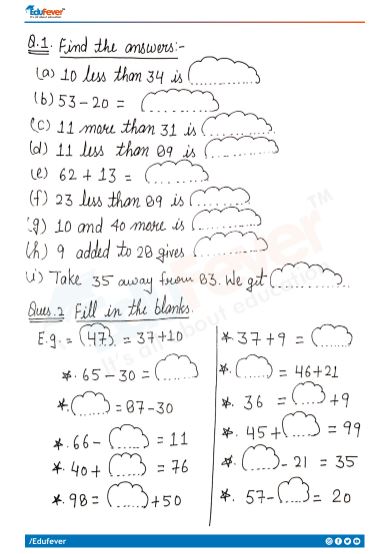 EduFever
It's all about education
Q.1. Find the answers:-
(a) 10 less than 34 is
(b) 53-20 =
(c) 11 more than 31 is
(d) 11 less than 89 is
(e) 62 + 13 =
(f) 23 less than 89 is
(g) 10 and 40 more is
(h) 9 added to 28 gives
(i) Take 35 away from 83. We get
Ques.2 Fill in the blanks.
E.g. = 47 = 37+10
*. 65-30 =
*. = 87-30
*. 66- = 11
*. 40+ = 76
*. 98= +50
*. 37+9 =
*. = 46+21
*. 36 = +9
*. 45+ = 99
*. - 21 = 35
*. 57- = 20
EduFever™
It's all about education
/Edufever